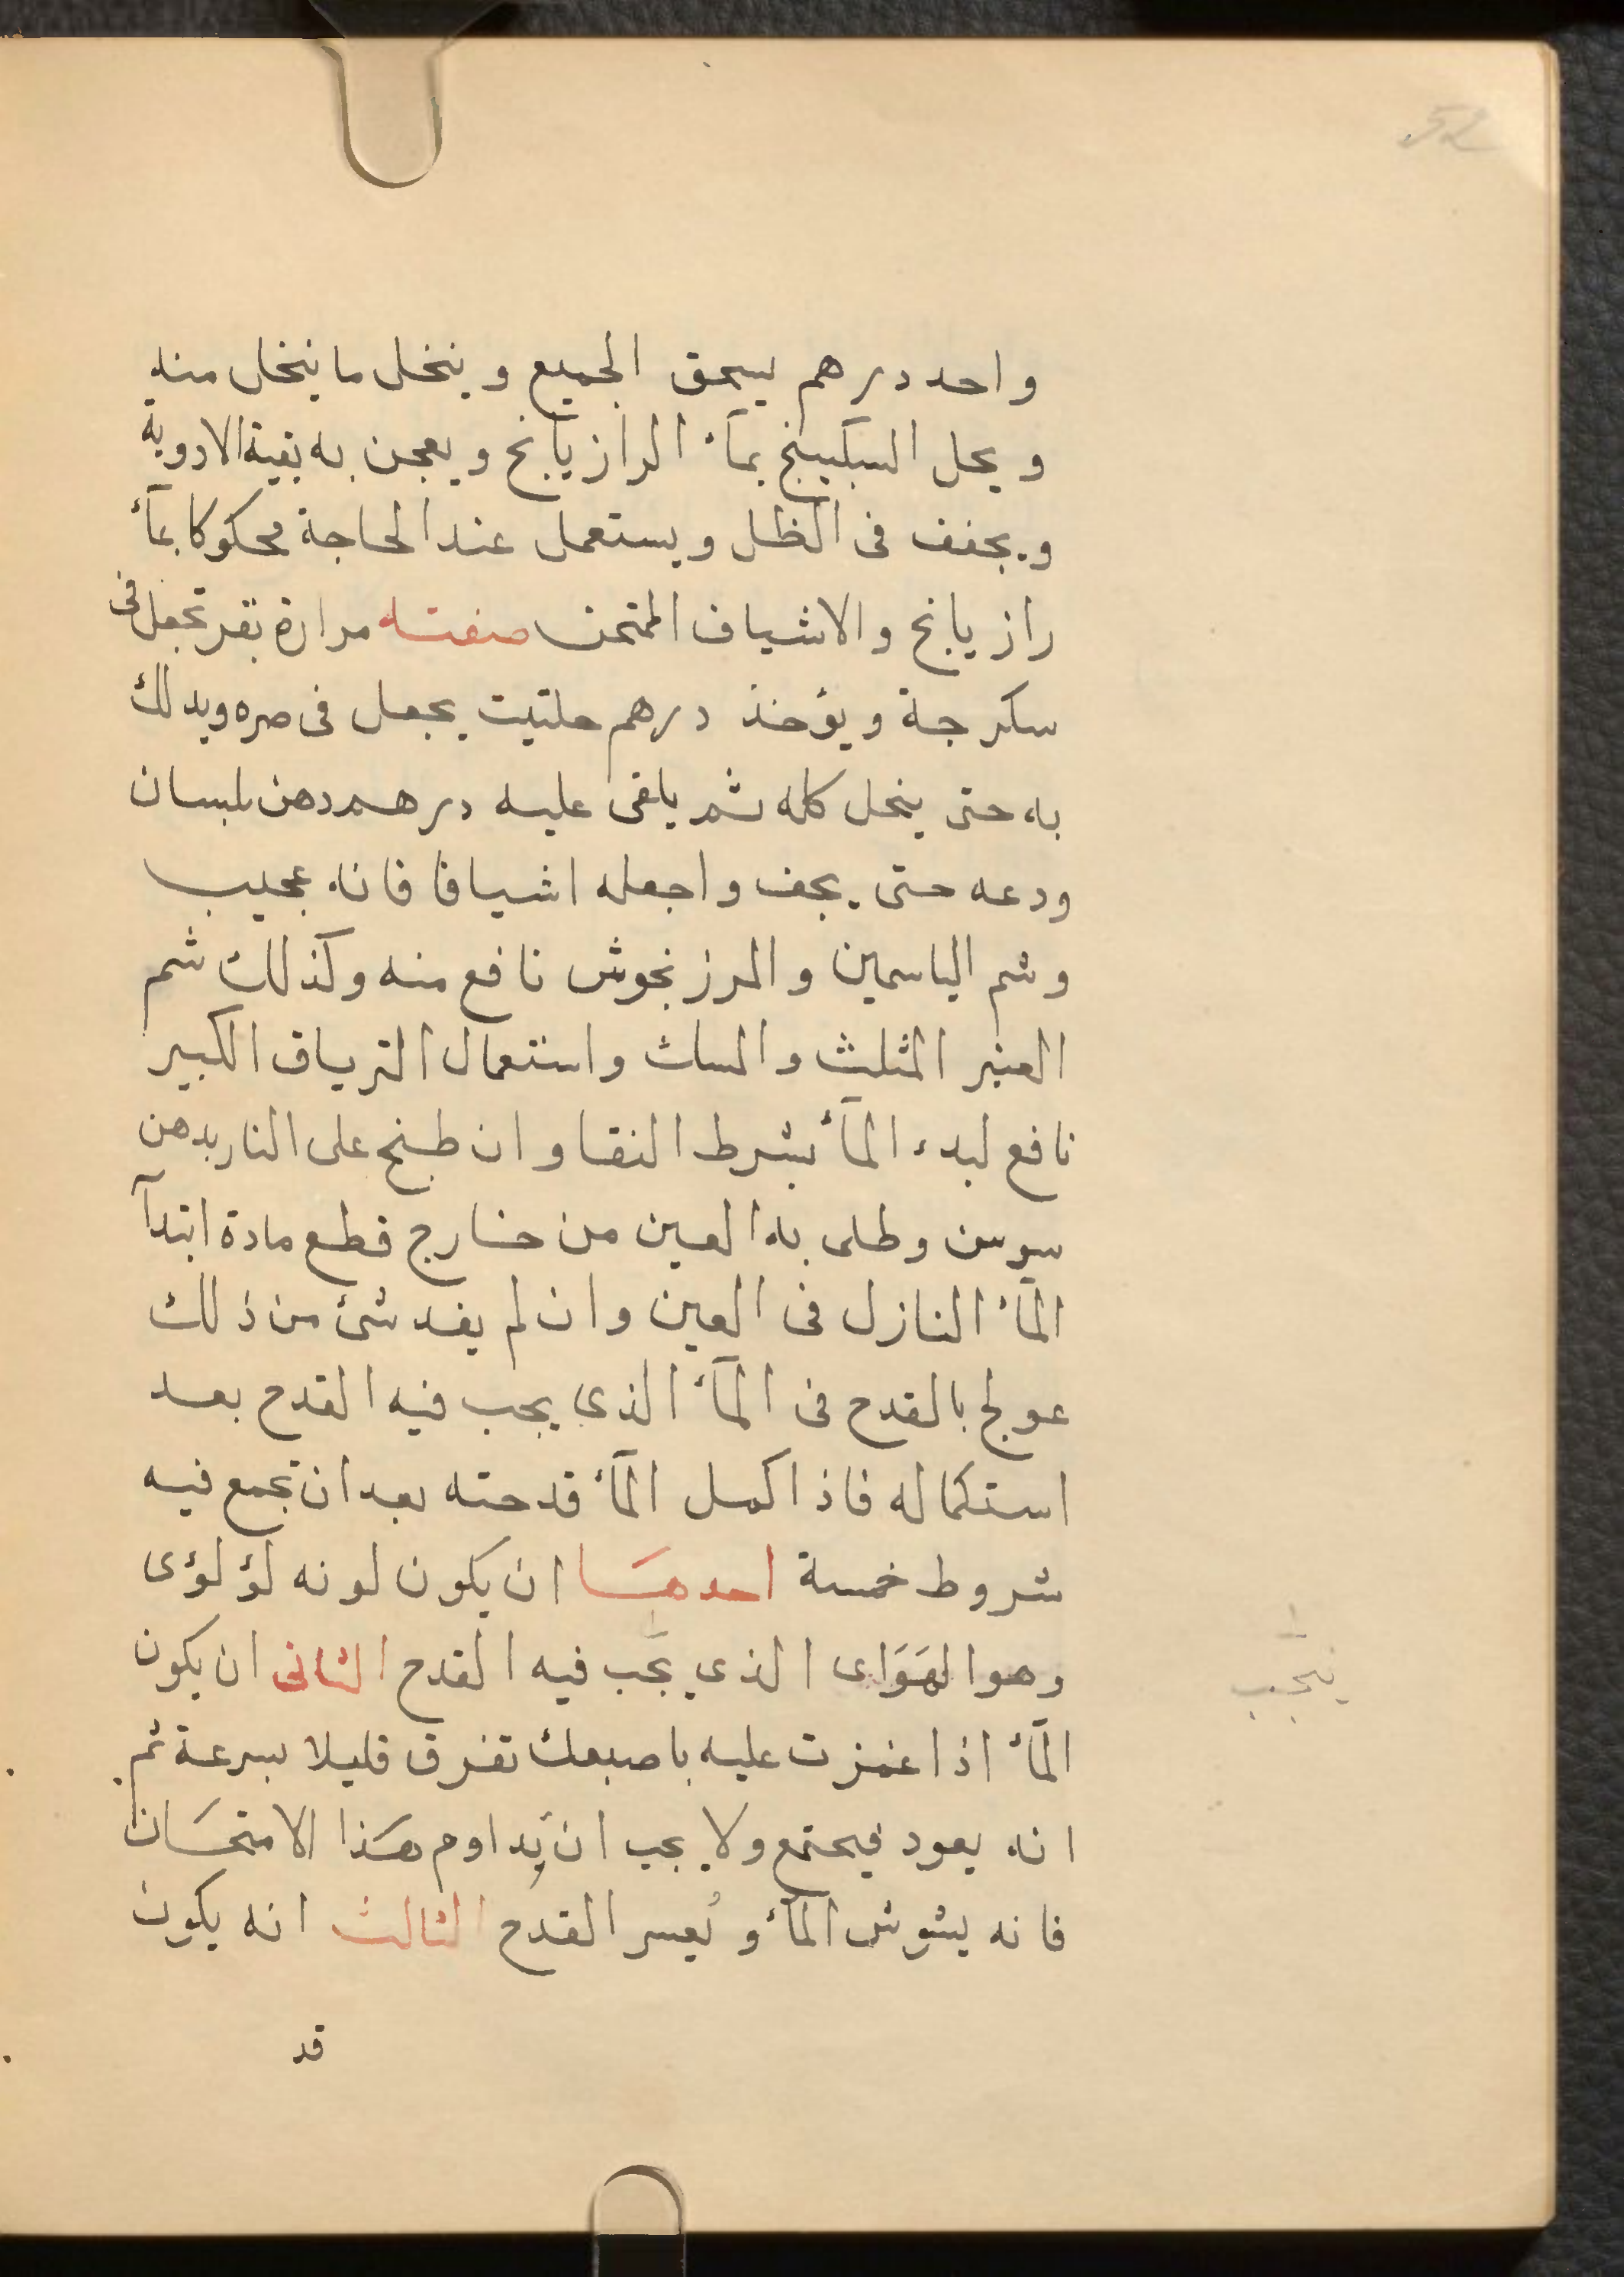 52
واحد درهم يسحق الجميع وينخل ما ينخل منه
ويحل السكبينج بمآء الرازيانج ويعجن به بقية الادوية
ويجفف فى الظل ويستعمل عند الحاجة محكوكا بمآء
رازيانج والاشياف الممتحن صفته مرارة بقر تجعل فى
سكرجة ويؤخذ درهم حلتيت يجعل فى صره ويدلك
به حتى ينحل كله ثم يلقى عليه درهم دهن بلسان
ودعه حتى يجف واجعله اشيافا فانه عجيب
وشم الياسمين والمرزنجوش نافع منه وكذلك شم
العنبر المثلث والمسك واستعمال الترياق الكبير
نافع لبدء المآء بشرط النقا وان طبخ على النار بدهن
سوسن وطلى به العين من خارج قطع مادة ابتدآ
المآء النازل فى العين وان لم يفد شئ من ذلك
عولج بالقدح فى المآء الذى يجب فيه القدح بعد
استكماله فاذا كمل المآء قدحته بعد ان تجمع فيه
شروط خمسة احدهَا ان يكون لونه لؤلؤى
وهو الهَوَاى الذي يجَب فيه القدح الثانى ان يكون
المآء اذا غمزت عليه باصبعك تفرق قليلا بسرعة ثم
انه يعود فيجتمع ولا يجب ان يُداوم هَذا الامتحَان
فانه يشوش المآء ويُعسر القدح الثالث انه يكون
قد
ينجب